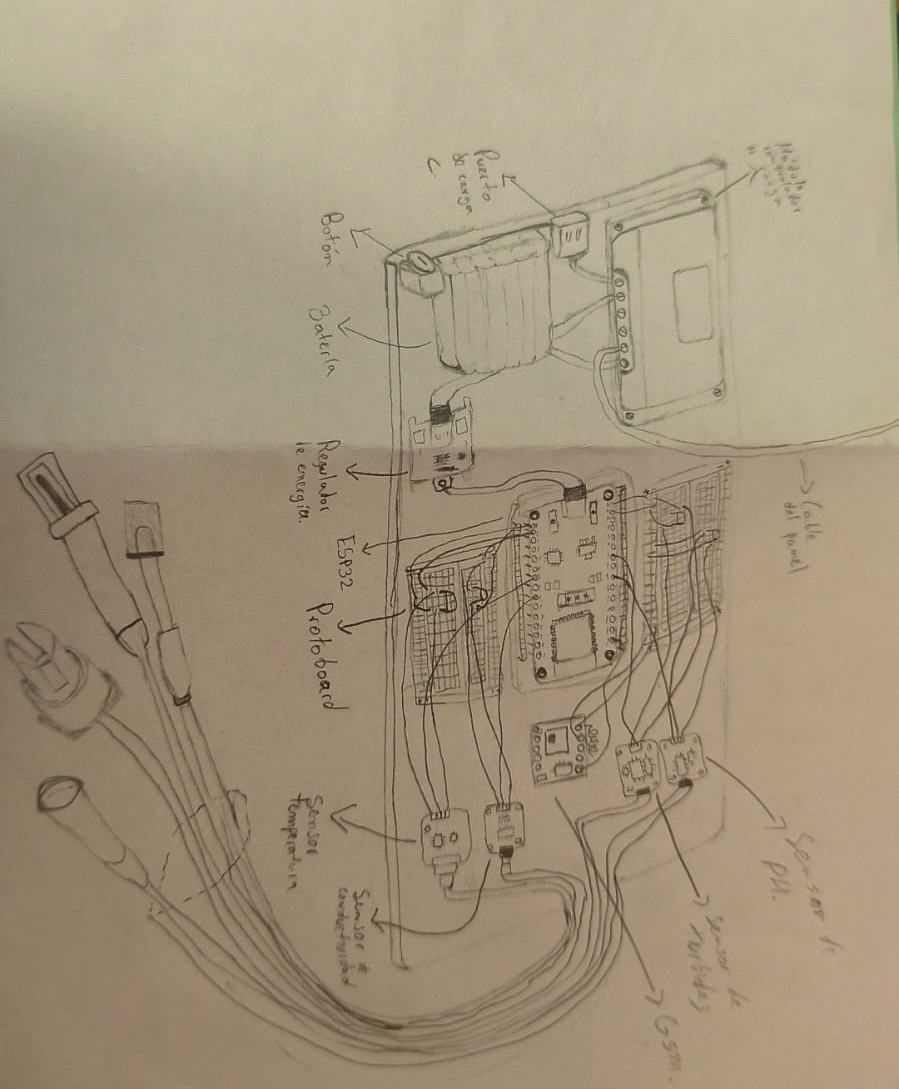 Módulo
de carga
Puerto
de carga
C.
Botón
Batería
Regulador
de energía.
ESP32
Protoboard
Sensor
temperatura
Sensor de
conductividad
Cable
del panel
Sensor de
PH.
Sensor de
turbidez
Gsm.